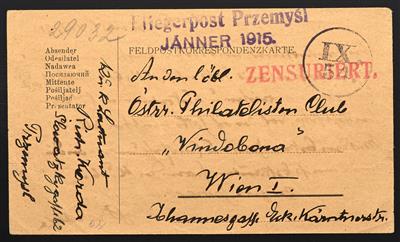 29032
Fliegerpost Przemyśl
JÄNNER 1915.
FELDPOSTKORRESPONDENZKARTE.
IX
ZENSURIERT.
Absender
Odesílatel
Nadawca
Посилаючий
Mittente
Pošiljatelj
Pošiljač
Presentator
An den löbl.
Östrr. Philatelisten Club
„Vindobona"
Wien I.
Johannesgasse Eck. Kärntnerstr.
Przemyśl